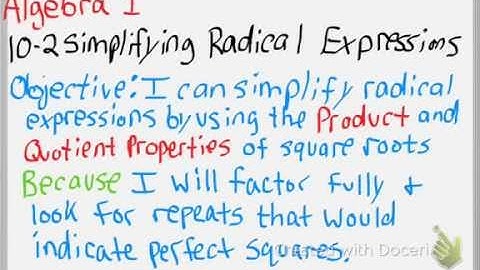 Algebra 1
10-2 Simplifying Radical Expressions
Objective: I can simplify radical
expressions by using the Product and
Quotient Properties of square roots
Because I will factor fully &
look for repeats that would
indicate perfect squares.